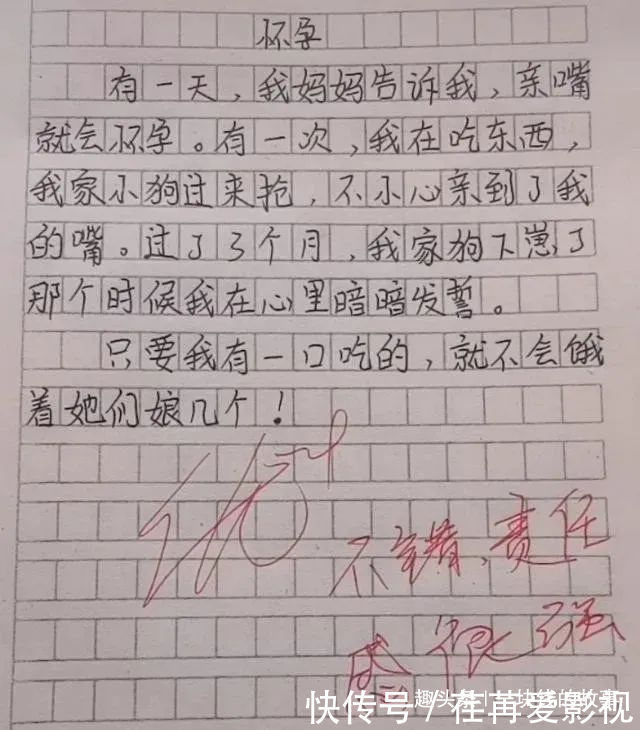 怀孕
有一天，我妈妈告诉我，亲嘴
就会怀孕。有一次，我在吃东西，
我家小狗过来抢，不小心亲到了我
的嘴。过了3个月，我家狗下崽了
那个时候我在心里暗暗发誓。
只要我有一口吃的，就不会饿
着她们娘几个！
不错，责任
感很强
快传号/在再爱影视